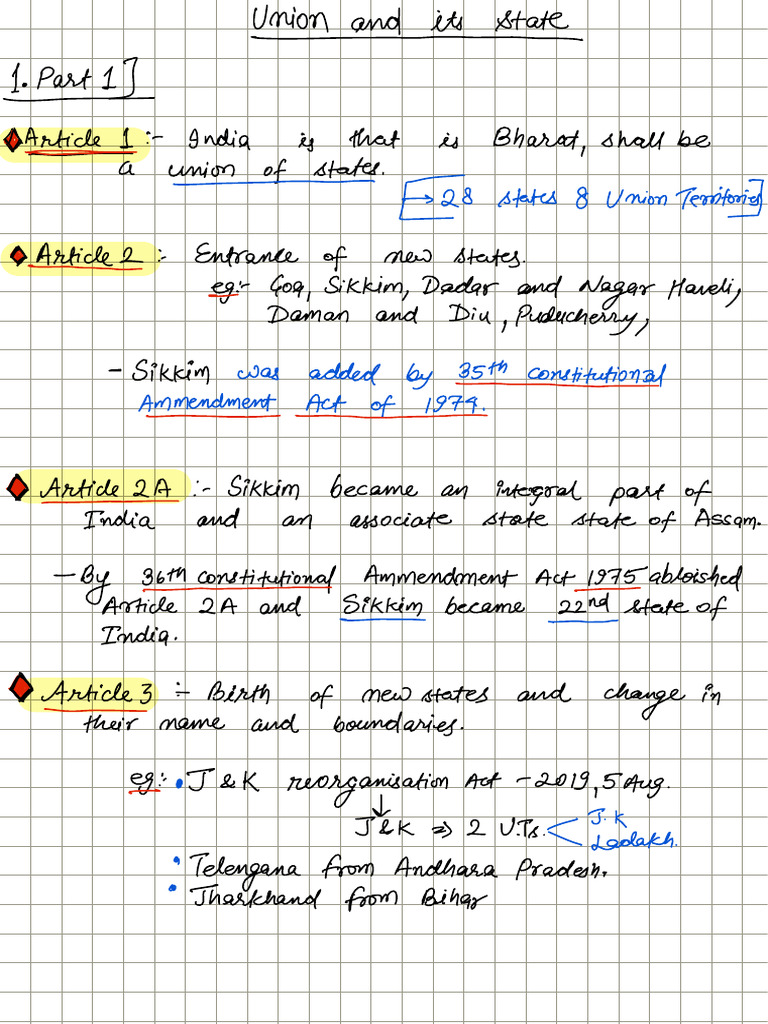 Union and its state
1. Part 1]
Article 1 :- India is that is Bharat, shall be
a union of states.
→ 28 states 8 Union Territories
Article 2 :- Entrance of new states.
eg:- Goa, Sikkim, Dadar and Nagar Haveli,
Daman and Diu, Puducherry,
- Sikkim was added by 35th constitutional
Ammendment Act of 1974.
Article 2A :- Sikkim became an integral part of
India and an associate state state of Assam.
- By 36th constitutional Ammendment Act 1975 abloished
Article 2A and Sikkim became 22nd state of
India.
Article 3 :- Birth of new states and change in
their name and boundaries.
eg:- • J & K reorganisation Act - 2019, 5 Aug.
↓
J & K ⇒ 2 U.Ts. < J.K
Ladakh.
• Telengana from Andhara Pradesh.
• Jharkhand from Bihar